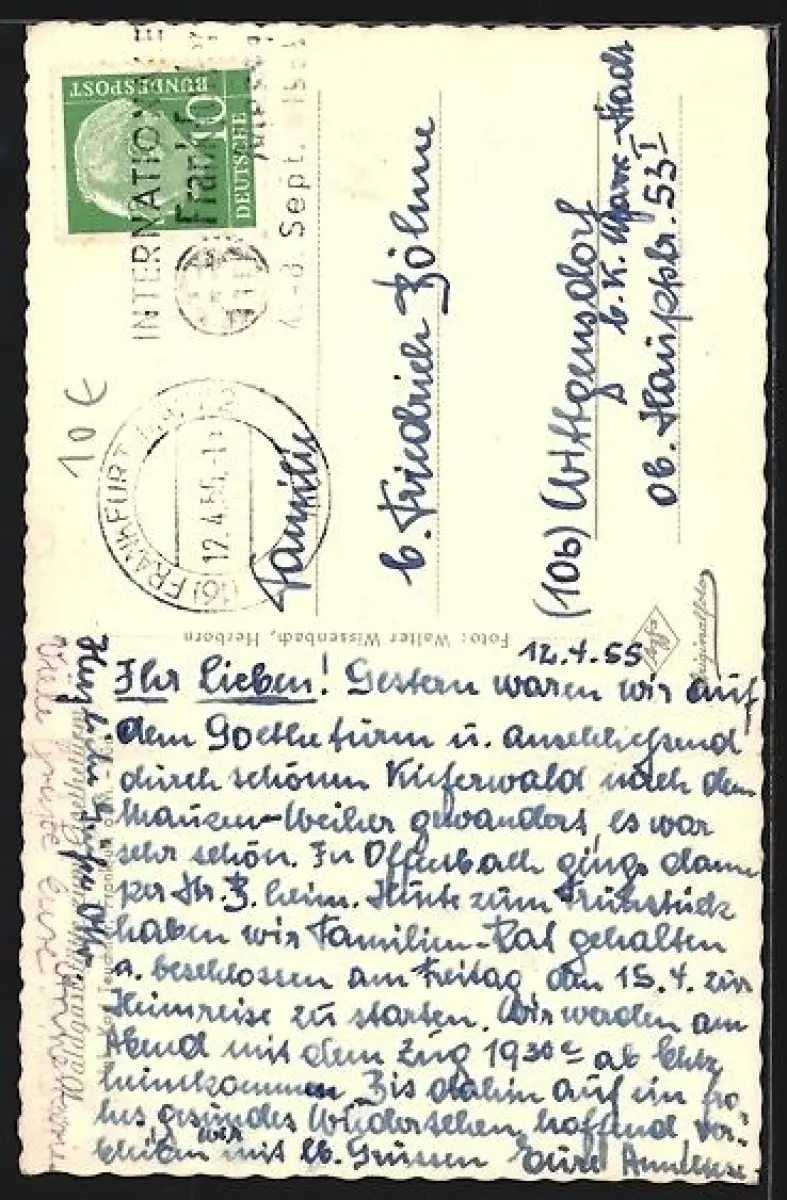 DEUTSCHE
BUNDESPOST
10
INTERNATIONALE
Sept.
10 €
(16) FRANKFURT
12.4.55.-1
Familie
b. Friedrich Böhme
(10b) Wittgensdorf
b. K. Marx-Stadt
ob. Hauptstr. 53 I
Foto: Walter Wissenbach, Herborn
Agfa
Originalfoto
12.4.55
Ihr Lieben! Gestern waren wir auf
dem Goetheturm u. anschliessend
durch schönen Kieferwald nach dem
Weiher gewandert, es war
sehr schön. In Offenbach gings dann
per Str. B. heim. Heute zum Frühstück
haben wir Familien-Rat gehalten
u. beschlossen am Freitag, den 15.4. zur
Heimreise zu starten. Wir werden am
Abend mit dem Zug 1930 ab
heimkommen. Bis dahin auf ein fro-
hes gesundes Wiedersehen hoffend ver-
bleiben wir mit lb. Grüssen Eure Anneliese
Herzliche Grüße Otto
Viele Grüße Eure